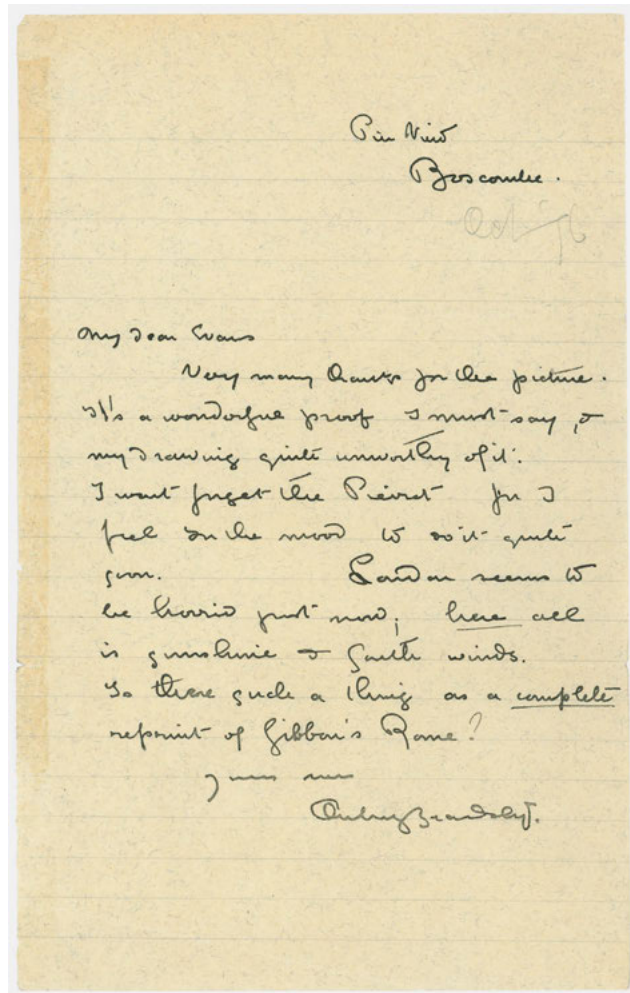 Pier View
Boscombe.
Oct 96
My dear Evans
Very many thanks for the picture.
It's a wonderful proof I must say, &
my drawing quite unworthy of it.
I wont forget the Pierrot for I
feel in the mood to do it quite
soon. London seems to
be horrid just now; here all
is sunshine & South winds.
Is there such a thing as a complete
reprint of Gibbon's Rome?
Yours ever
Aubrey Beardsley.